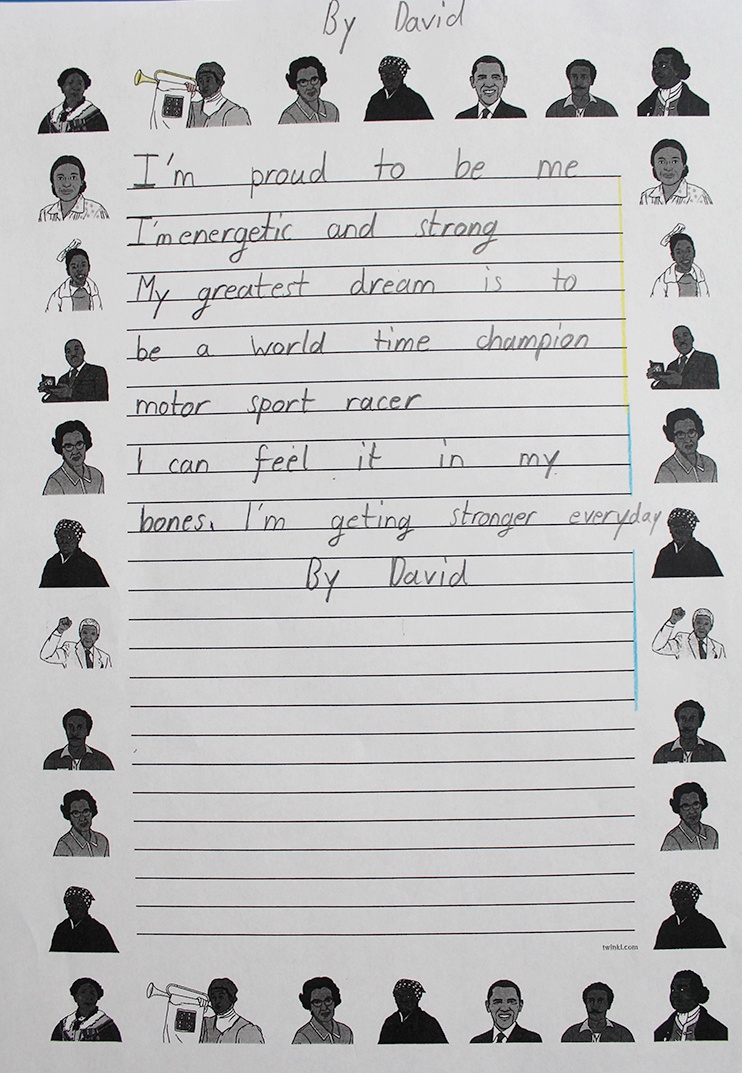 By David
I'm proud to be me
I'm energetic and strong
My greatest dream is to
be a world time champion
motor sport racer
I can feel it in my
bones. I'm geting stronger everyday
By David
twinkl.com